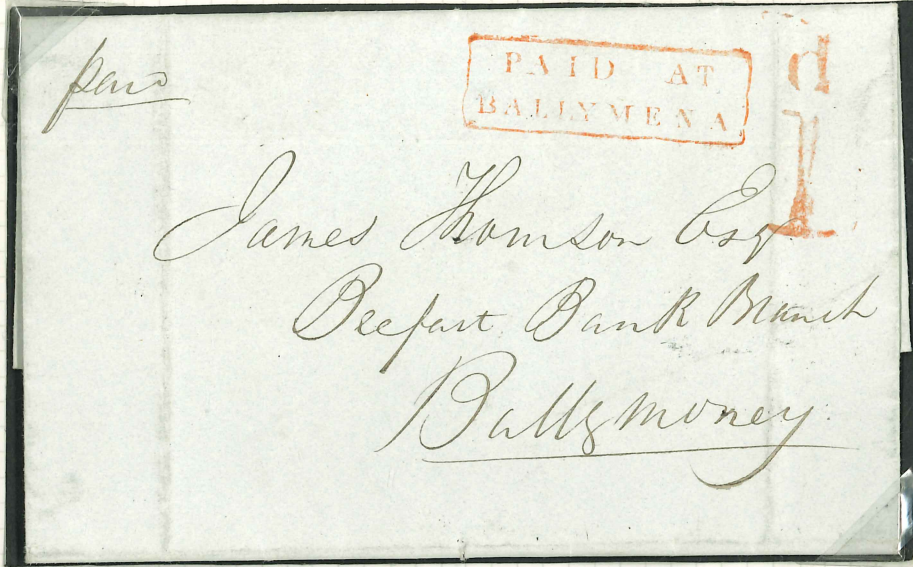 paid
PAID AT
BALLYMENA
d
1
James Thomson Esqr
Belfast Bank Branch
Ballymoney